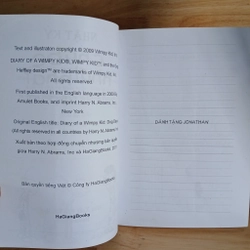 Text and illustration copyright © 2009 Wimpy Kid, Inc.
DIARY OF A WIMPY KID®, WIMPY KID™, and the Greg
Heffley design™ are trademarks of Wimpy Kid, Inc.
All rights reserved.
First published in the English language in 2009
Amulet Books, and imprint Harry N. Abrams, Inc
New York.
Original English title: Diary of a Wimpy Kid: Dog Days
(All rights reserved in all countries by Harry N. Abrams, Inc
Xuất bản theo hợp đồng chuyển nhượng bản quyền
giữa Harry N. Abrams, Inc và HaGiangBooks
Bản quyền tiếng Việt © Công ty HaGiangBooks
HaGiangBooks
DÀNH TẶNG JONATHAN